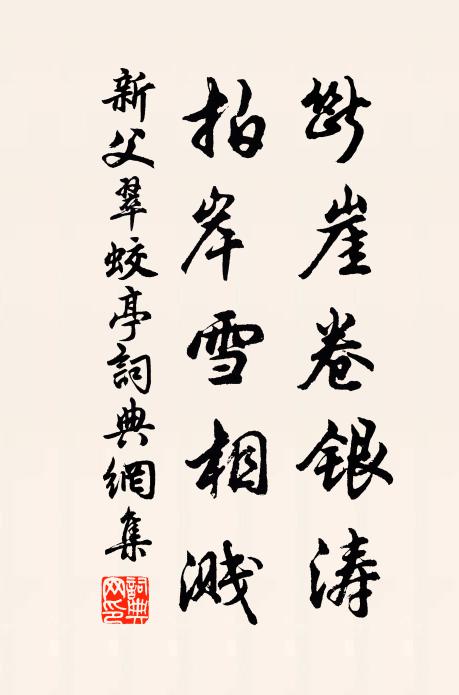 斷崖卷銀涛
拍岸雪相濺
新父翠蛟亭詞典網集
詞典网印